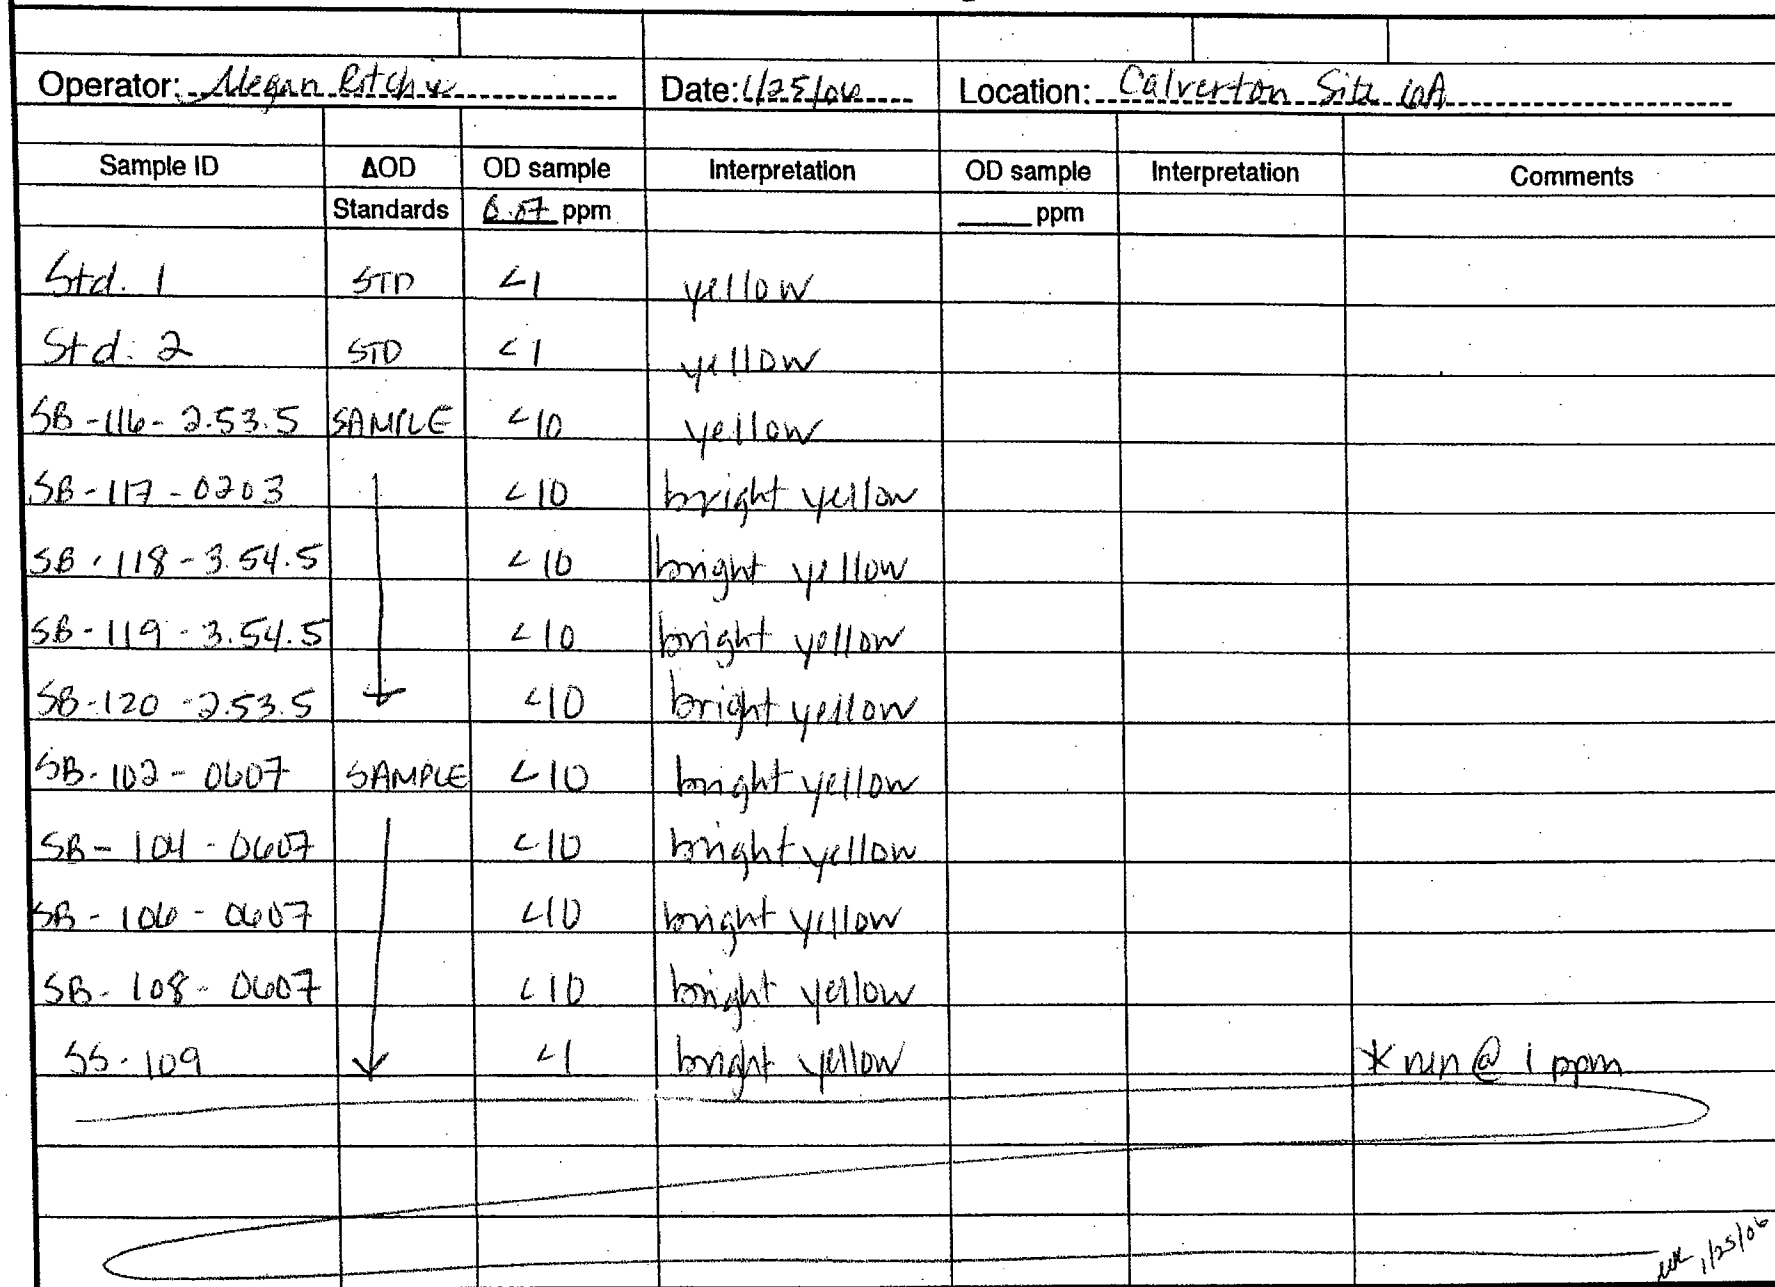 Operator: Megan Ritchie Date: 1/25/06 Location: Calverton Site 6A
Sample ID ΔOD OD sample Interpretation OD sample Interpretation Comments
Standards ppm ____ ppm
Std. 1 STD <1 yellow
Std. 2 STD <1 yellow
SB-116-2.53.5 SAMPLE <10 yellow
SB-117-0203 <10 bright yellow
SB-118-3.54.5 <10 bright yellow
SB-119-3.54.5 <10 bright yellow
SB-120-2.53.5 <10 bright yellow
SB-102-0607 SAMPLE <10 bright yellow
SB-104-0607 <10 bright yellow
SB-106-0607 <10 bright yellow
SB-108-0607 <10 bright yellow
SS-109 <1 bright yellow *run @ 1 ppm
1/25/06